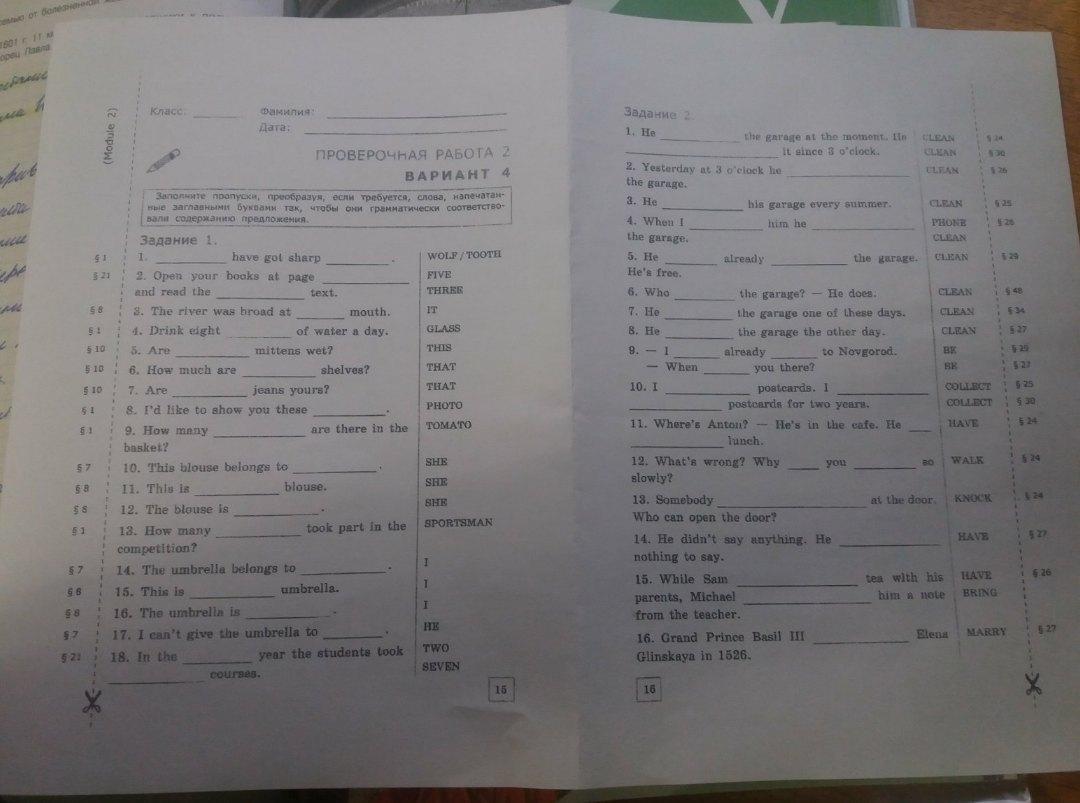 семью от болезненной
1601 г. 11
орец Павла
(Module 2)
Класс: ______ Фамилия: ______
Дата: ______
ПРОВЕРОЧНАЯ РАБОТА 2
ВАРИАНТ 4
Заполните пропуски, преобразуя, если требуется, слова, напечатан-
ные заглавными буквами так, чтобы они грамматически соответство-
вали содержанию предложения.
Задание 1.
§ 1 1. ______ have got sharp ______. WOLF / TOOTH
§ 21 2. Open your books at page ______ FIVE
and read the ______ text. THREE
§ 8 3. The river was broad at ______ mouth. IT
§ 1 4. Drink eight ______ of water a day. GLASS
§ 10 5. Are ______ mittens wet? THIS
§ 10 6. How much are ______ shelves? THAT
§ 10 7. Are ______ jeans yours? THAT
§ 1 8. I'd like to show you these ______. PHOTO
§ 1 9. How many ______ are there in the TOMATO
basket?
§ 7 10. This blouse belongs to ______. SHE
§ 8 11. This is ______ blouse. SHE
§ 8 12. The blouse is ______. SHE
§ 1 13. How many ______ took part in the SPORTSMAN
competition?
§ 7 14. The umbrella belongs to ______. I
§ 8 15. This is ______ umbrella. I
§ 8 16. The umbrella is ______. I
§ 7 17. I can't give the umbrella to ______. HE
§ 21 18. In the ______ year the students took TWO
______ courses. SEVEN
15
Задание 2.
1. He ______ the garage at the moment. He CLEAN § 24
______ it since 3 o'clock. CLEAN § 30
2. Yesterday at 3 o'clock he ______ CLEAN § 26
the garage.
3. He ______ his garage every summer. CLEAN § 25
4. When I ______ him he ______ PHONE § 26
the garage. CLEAN
5. He ______ already ______ the garage. CLEAN § 29
He's free.
6. Who ______ the garage? — He does. CLEAN § 48
7. He ______ the garage one of these days. CLEAN § 34
8. He ______ the garage the other day. CLEAN § 27
9. — I ______ already ______ to Novgorod. BE § 29
— When ______ you there? BE § 27
10. I ______ postcards. I ______ COLLECT § 25
______ postcards for two years. COLLECT § 30
11. Where's Anton? — He's in the cafe. He ___ HAVE § 24
______ lunch.
12. What's wrong? Why ____ you ______ so WALK § 24
slowly?
13. Somebody ______ at the door. KNOCK § 24
Who can open the door?
14. He didn't say anything. He ______ HAVE § 27
nothing to say.
15. While Sam ______ tea with his HAVE § 26
parents, Michael ______ him a note BRING
from the teacher.
16. Grand Prince Basil III ______ Elena MARRY § 27
Glinskaya in 1526.
16